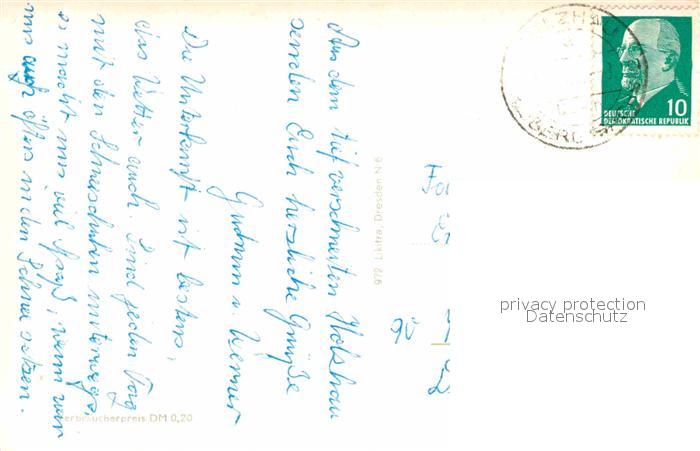 Aus dem tief verschneiten Holzhau
senden Euch herzliche Grüße
Gudrun u. Werner
Die Unterkunft ist bestens,
das Wetter auch. Sind jeden Tag
mit den Schneeschuhen unterwegs,
es macht uns viel Spaß, wenn wir
uns auch öfters in den Schnee setzen.
Verbraucherpreis DM 0,20
972 Likitra, Dresden N 6
HOLZHAU
10
DEUTSCHE
DEMOKRATISCHE REPUBLIK
Fa
privacy protection
Datenschutz